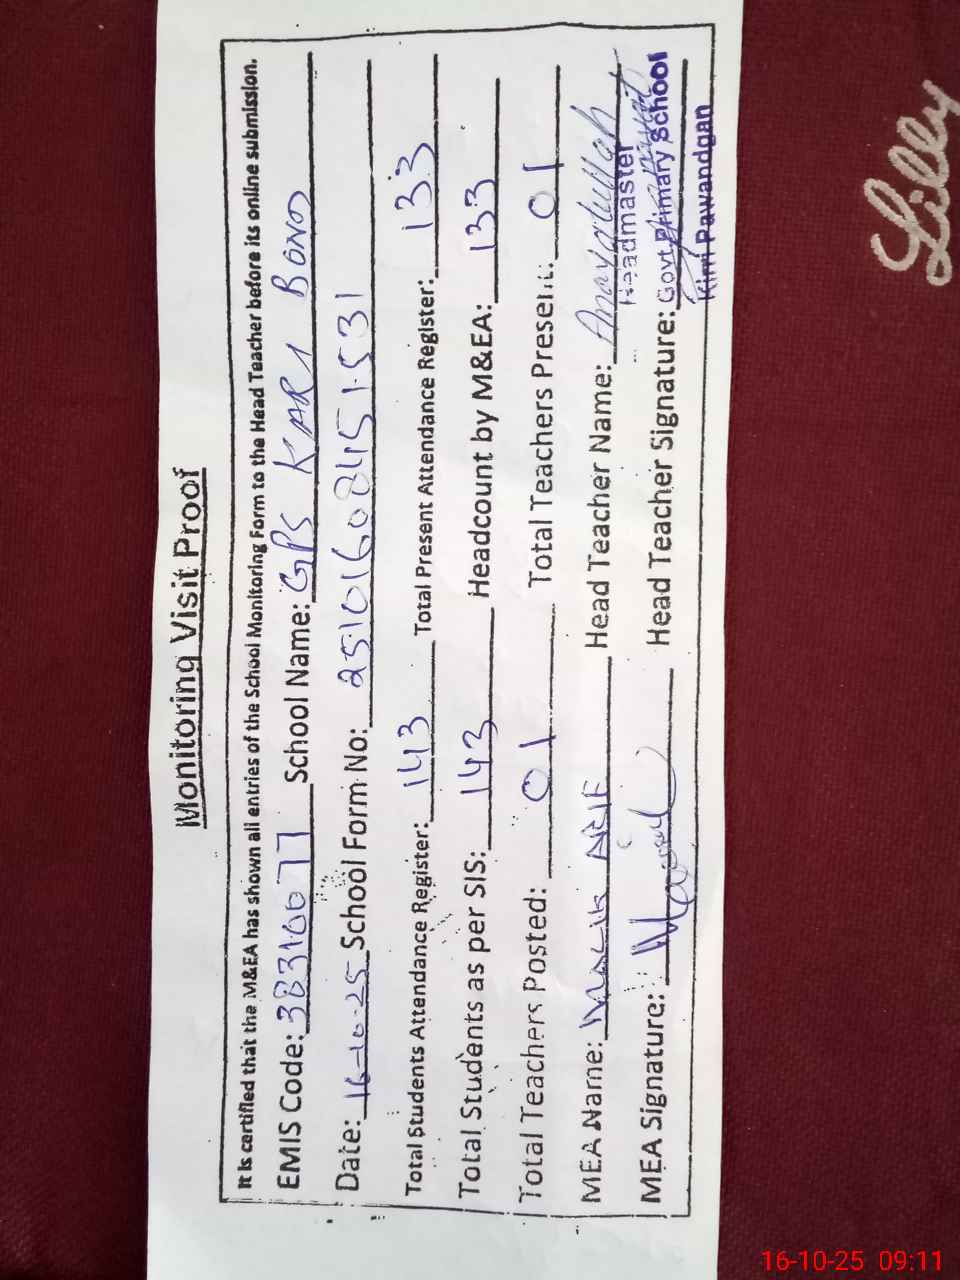 Monitoring Visit Proof
It is certified that the M&EA has shown all entries of the School Monitoring Form to the Head Teacher before its online submission.
EMIS Code: 38310077 School Name: GPS KARI BONO
Date: 16-10-25 School Form No: 25101608451531
Total Students Attendance Register: 143 Total Present Attendance Register: 133
Total Students as per SIS: 143 Headcount by M&EA: 133
Total Teachers Posted: 01 Total Teachers Present: 01
MEA Name: Malik ARIF Head Teacher Name: Anayatullah
Headmaster
MEA Signature: Head Teacher Signature:
Govt Primary School
Pawandgan
Lilly
16-10-25 09:11